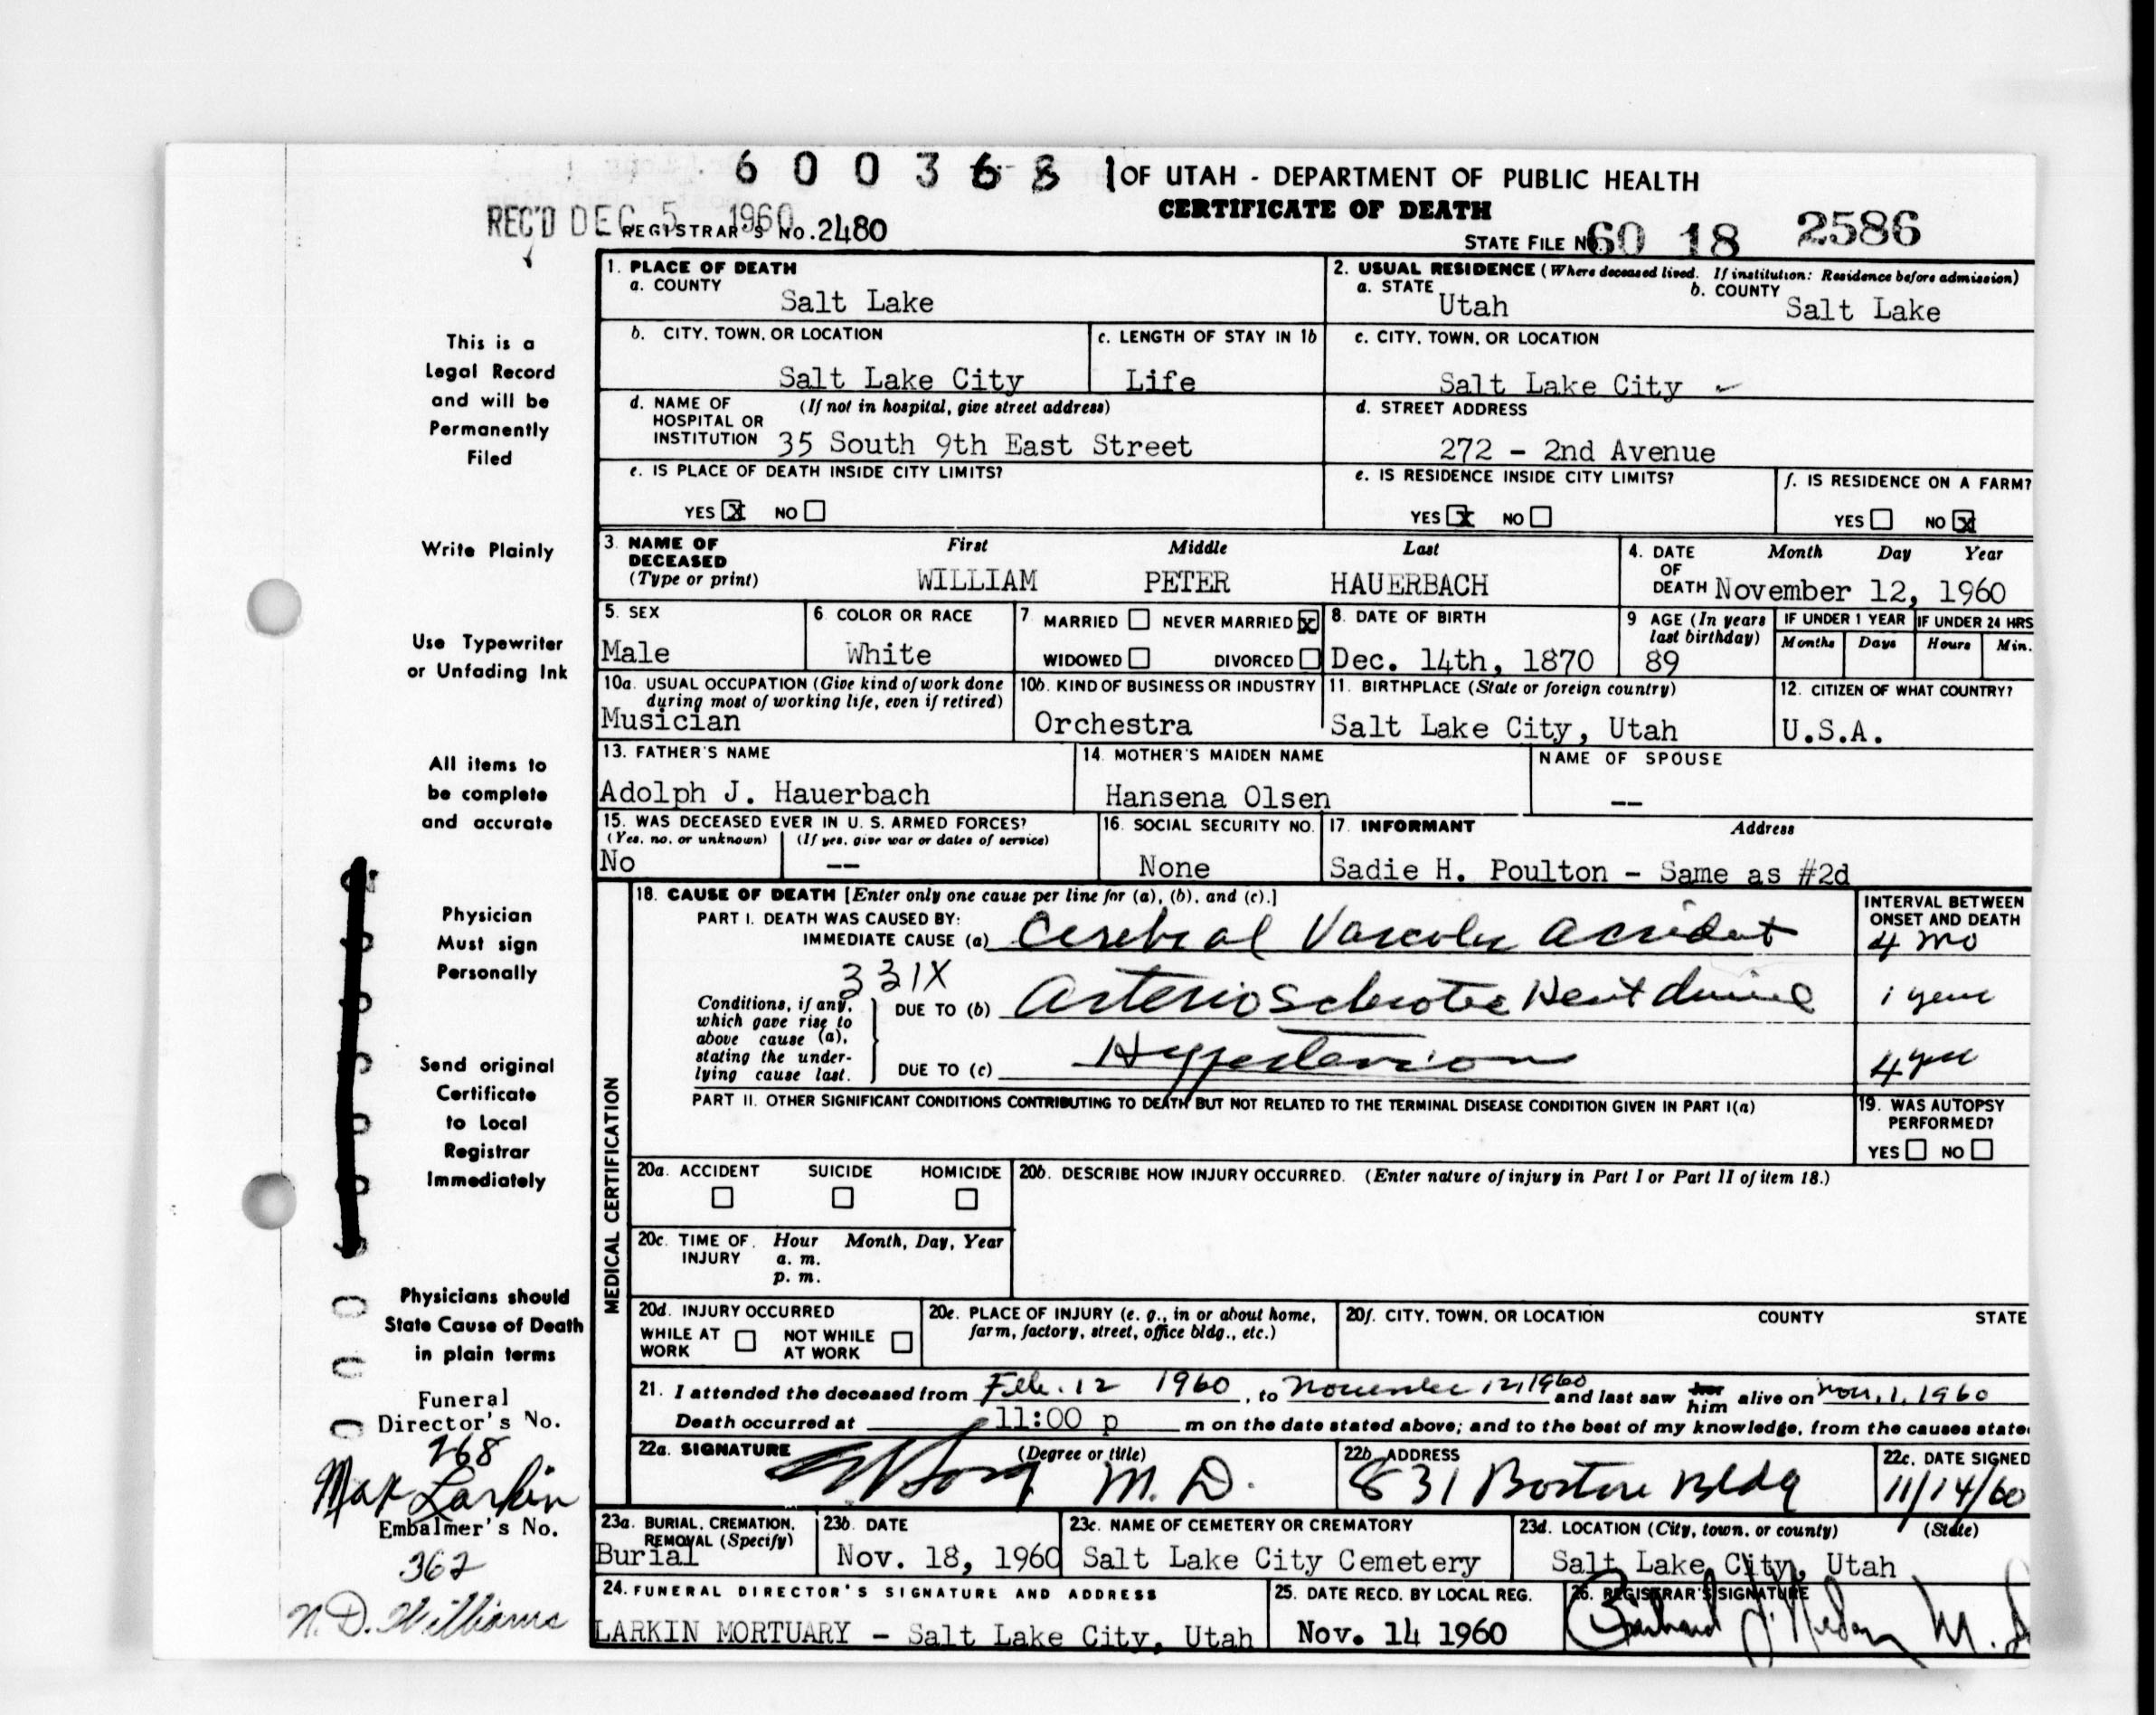 6 0 0 3 6 8 1 OF UTAH - DEPARTMENT OF PUBLIC HEALTH
CERTIFICATE OF DEATH
REC'D DEC 5 1960 REGISTRAR'S No. 2480
STATE FILE No 60 18 2586
1. PLACE OF DEATH
a. COUNTY
Salt Lake
2. USUAL RESIDENCE (Where deceased lived. If institution: Residence before admission)
a. STATE
Utah
b. COUNTY
Salt Lake
b. CITY, TOWN, OR LOCATION
Salt Lake City
c. LENGTH OF STAY IN 1b
Life
c. CITY, TOWN, OR LOCATION
Salt Lake City
d. NAME OF HOSPITAL OR INSTITUTION
(If not in hospital, give street address)
35 South 9th East Street
d. STREET ADDRESS
272 - 2nd Avenue
e. IS PLACE OF DEATH INSIDE CITY LIMITS?
YES X NO
e. IS RESIDENCE INSIDE CITY LIMITS?
YES X NO
f. IS RESIDENCE ON A FARM?
YES NO X
3. NAME OF DECEASED (Type or print)
First Middle Last
WILLIAM PETER HAUERBACH
4. DATE OF DEATH
Month Day Year
November 12, 1960
5. SEX
Male
6 COLOR OR RACE
White
7 MARRIED NEVER MARRIED X
WIDOWED DIVORCED
8. DATE OF BIRTH
Dec. 14th, 1870
9 AGE (In years last birthday)
89
IF UNDER 1 YEAR
Months Days
IF UNDER 24 HRS
Hours Min.
10a. USUAL OCCUPATION (Give kind of work done during most of working life, even if retired)
Musician
10b. KIND OF BUSINESS OR INDUSTRY
Orchestra
11. BIRTHPLACE (State or foreign country)
Salt Lake City, Utah
12. CITIZEN OF WHAT COUNTRY?
U.S.A.
13. FATHER'S NAME
Adolph J. Hauerbach
14. MOTHER'S MAIDEN NAME
Hansena Olsen
NAME OF SPOUSE
--
15. WAS DECEASED EVER IN U. S. ARMED FORCES?
(Yes, no, or unknown) (If yes, give war or dates of service)
No --
16. SOCIAL SECURITY NO.
None
17. INFORMANT Address
Sadie H. Poulton - Same as #2d
MEDICAL CERTIFICATION
18. CAUSE OF DEATH [Enter only one cause per line for (a), (b), and (c).]
PART I. DEATH WAS CAUSED BY:
IMMEDIATE CAUSE (a) Cerebral Vascular Accident
INTERVAL BETWEEN ONSET AND DEATH
4 mo
331X
Conditions, if any, which gave rise to above cause (a), stating the underlying cause last.
DUE TO (b) Arteriosclerotic Heart disease
1 year
DUE TO (c) Hypertension
4 year
PART II. OTHER SIGNIFICANT CONDITIONS CONTRIBUTING TO DEATH BUT NOT RELATED TO THE TERMINAL DISEASE CONDITION GIVEN IN PART I(a)
19. WAS AUTOPSY PERFORMED?
YES NO
20a. ACCIDENT SUICIDE HOMICIDE
20b. DESCRIBE HOW INJURY OCCURRED. (Enter nature of injury in Part I or Part II of item 18.)
20c. TIME OF INJURY Hour Month, Day, Year
a. m.
p. m.
20d. INJURY OCCURRED
WHILE AT WORK NOT WHILE AT WORK
20e. PLACE OF INJURY (e. g., in or about home, farm, factory, street, office bldg., etc.)
20f. CITY, TOWN, OR LOCATION COUNTY STATE
21. I attended the deceased from Feb. 12 1960, to November 12, 1960 and last saw her him alive on Nov. 1, 1960
Death occurred at 11:00 p m on the date stated above; and to the best of my knowledge, from the causes state
22a. SIGNATURE (Degree or title)
M. D.
22b. ADDRESS
831 Boston Bldg
22c. DATE SIGNED
11/14/60
23a. BURIAL, CREMATION, REMOVAL (Specify)
Burial
23b. DATE
Nov. 18, 1960
23c. NAME OF CEMETERY OR CREMATORY
Salt Lake City Cemetery
23d. LOCATION (City, town, or county) (State)
Salt Lake City, Utah
24. FUNERAL DIRECTOR'S SIGNATURE AND ADDRESS
LARKIN MORTUARY - Salt Lake City, Utah
25. DATE RECD. BY LOCAL REG.
Nov. 14 1960
26. REGISTRAR'S SIGNATURE
This is a
Legal Record
and will be
Permanently
Filed
Write Plainly
Use Typewriter
or Unfading Ink
All items to
be complete
and accurate
Physician
Must sign
Personally
Send original
Certificate
to Local
Registrar
Immediately
Physicians should
State Cause of Death
in plain terms
Funeral
Director's No.
268
Max Larkin
Embalmer's No.
362
N. D. Williams